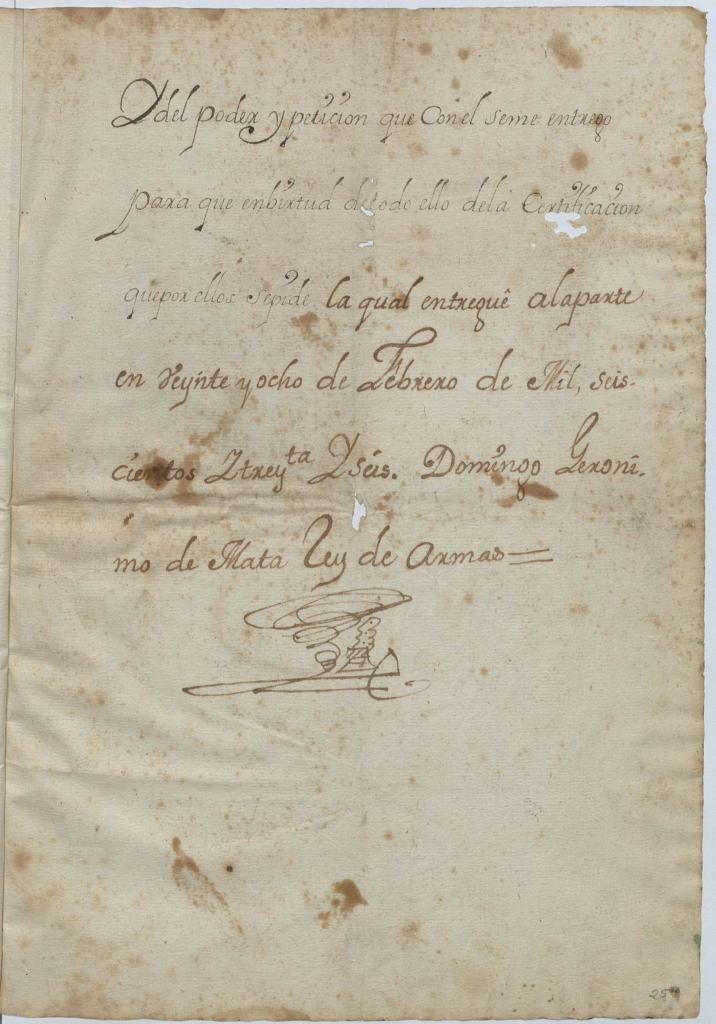 Y del poder y peticion que Con el seme entrego
para que enbirtud detodo ello dela Certificacion
quepor ellos sepide la qual entreguê alaparte
en Veynte y ocho de Febrero de Mil, seis-
cientos Ztreyta Y seis. Domingo Geroni-
mo de Mata Rey de Armas=
25